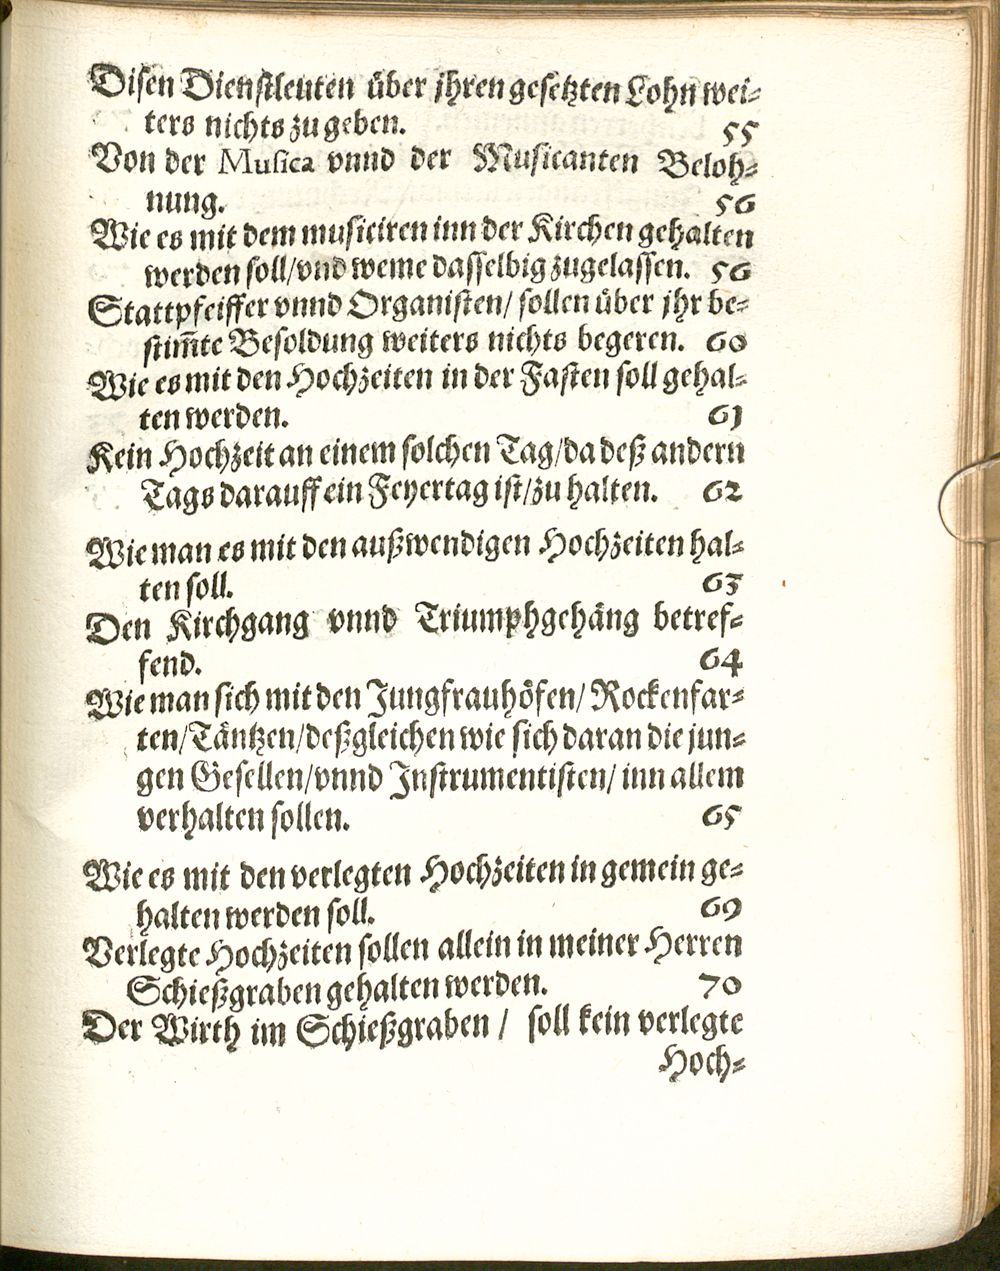 Disen Dienstleuten über jhren gesetzten Lohn wei-
ters nichts zu geben. 55
Von der Musica vnnd der Musicanten Beloh-
nung. 56
Wie es mit dem musiciren inn der Kirchen gehalten
werden soll/vnd weme dasselbig zugelassen. 56
Stattpfeiffer vnnd Organisten/ sollen über jhr be-
stim̃te Besoldung weiters nichts begeren. 60
Wie es mit den Hochzeiten in der Fasten soll gehal-
ten werden. 61
Kein Hochzeit an einem solchen Tag/da deß andern
Tags darauff ein Feyertag ist/zu halten. 62
Wie man es mit den außwendigen Hochzeiten hal-
ten soll. 63
Den Kirchgang vnnd Triumphgehäng betref-
fend. 64
Wie man sich mit den Jungfrauhöfen/ Rockenfar-
ten/Täntzen/deßgleichen wie sich daran die jun-
gen Gesellen/vnnd Instrumentisten/ inn allem
verhalten sollen. 65
Wie es mit den verlegten Hochzeiten in gemein ge-
halten werden soll. 69
Verlegte Hochzeiten sollen allein in meiner Herren
Schießgraben gehalten werden. 70
Der Wirth im Schießgraben / soll kein verlegte
Hoch-